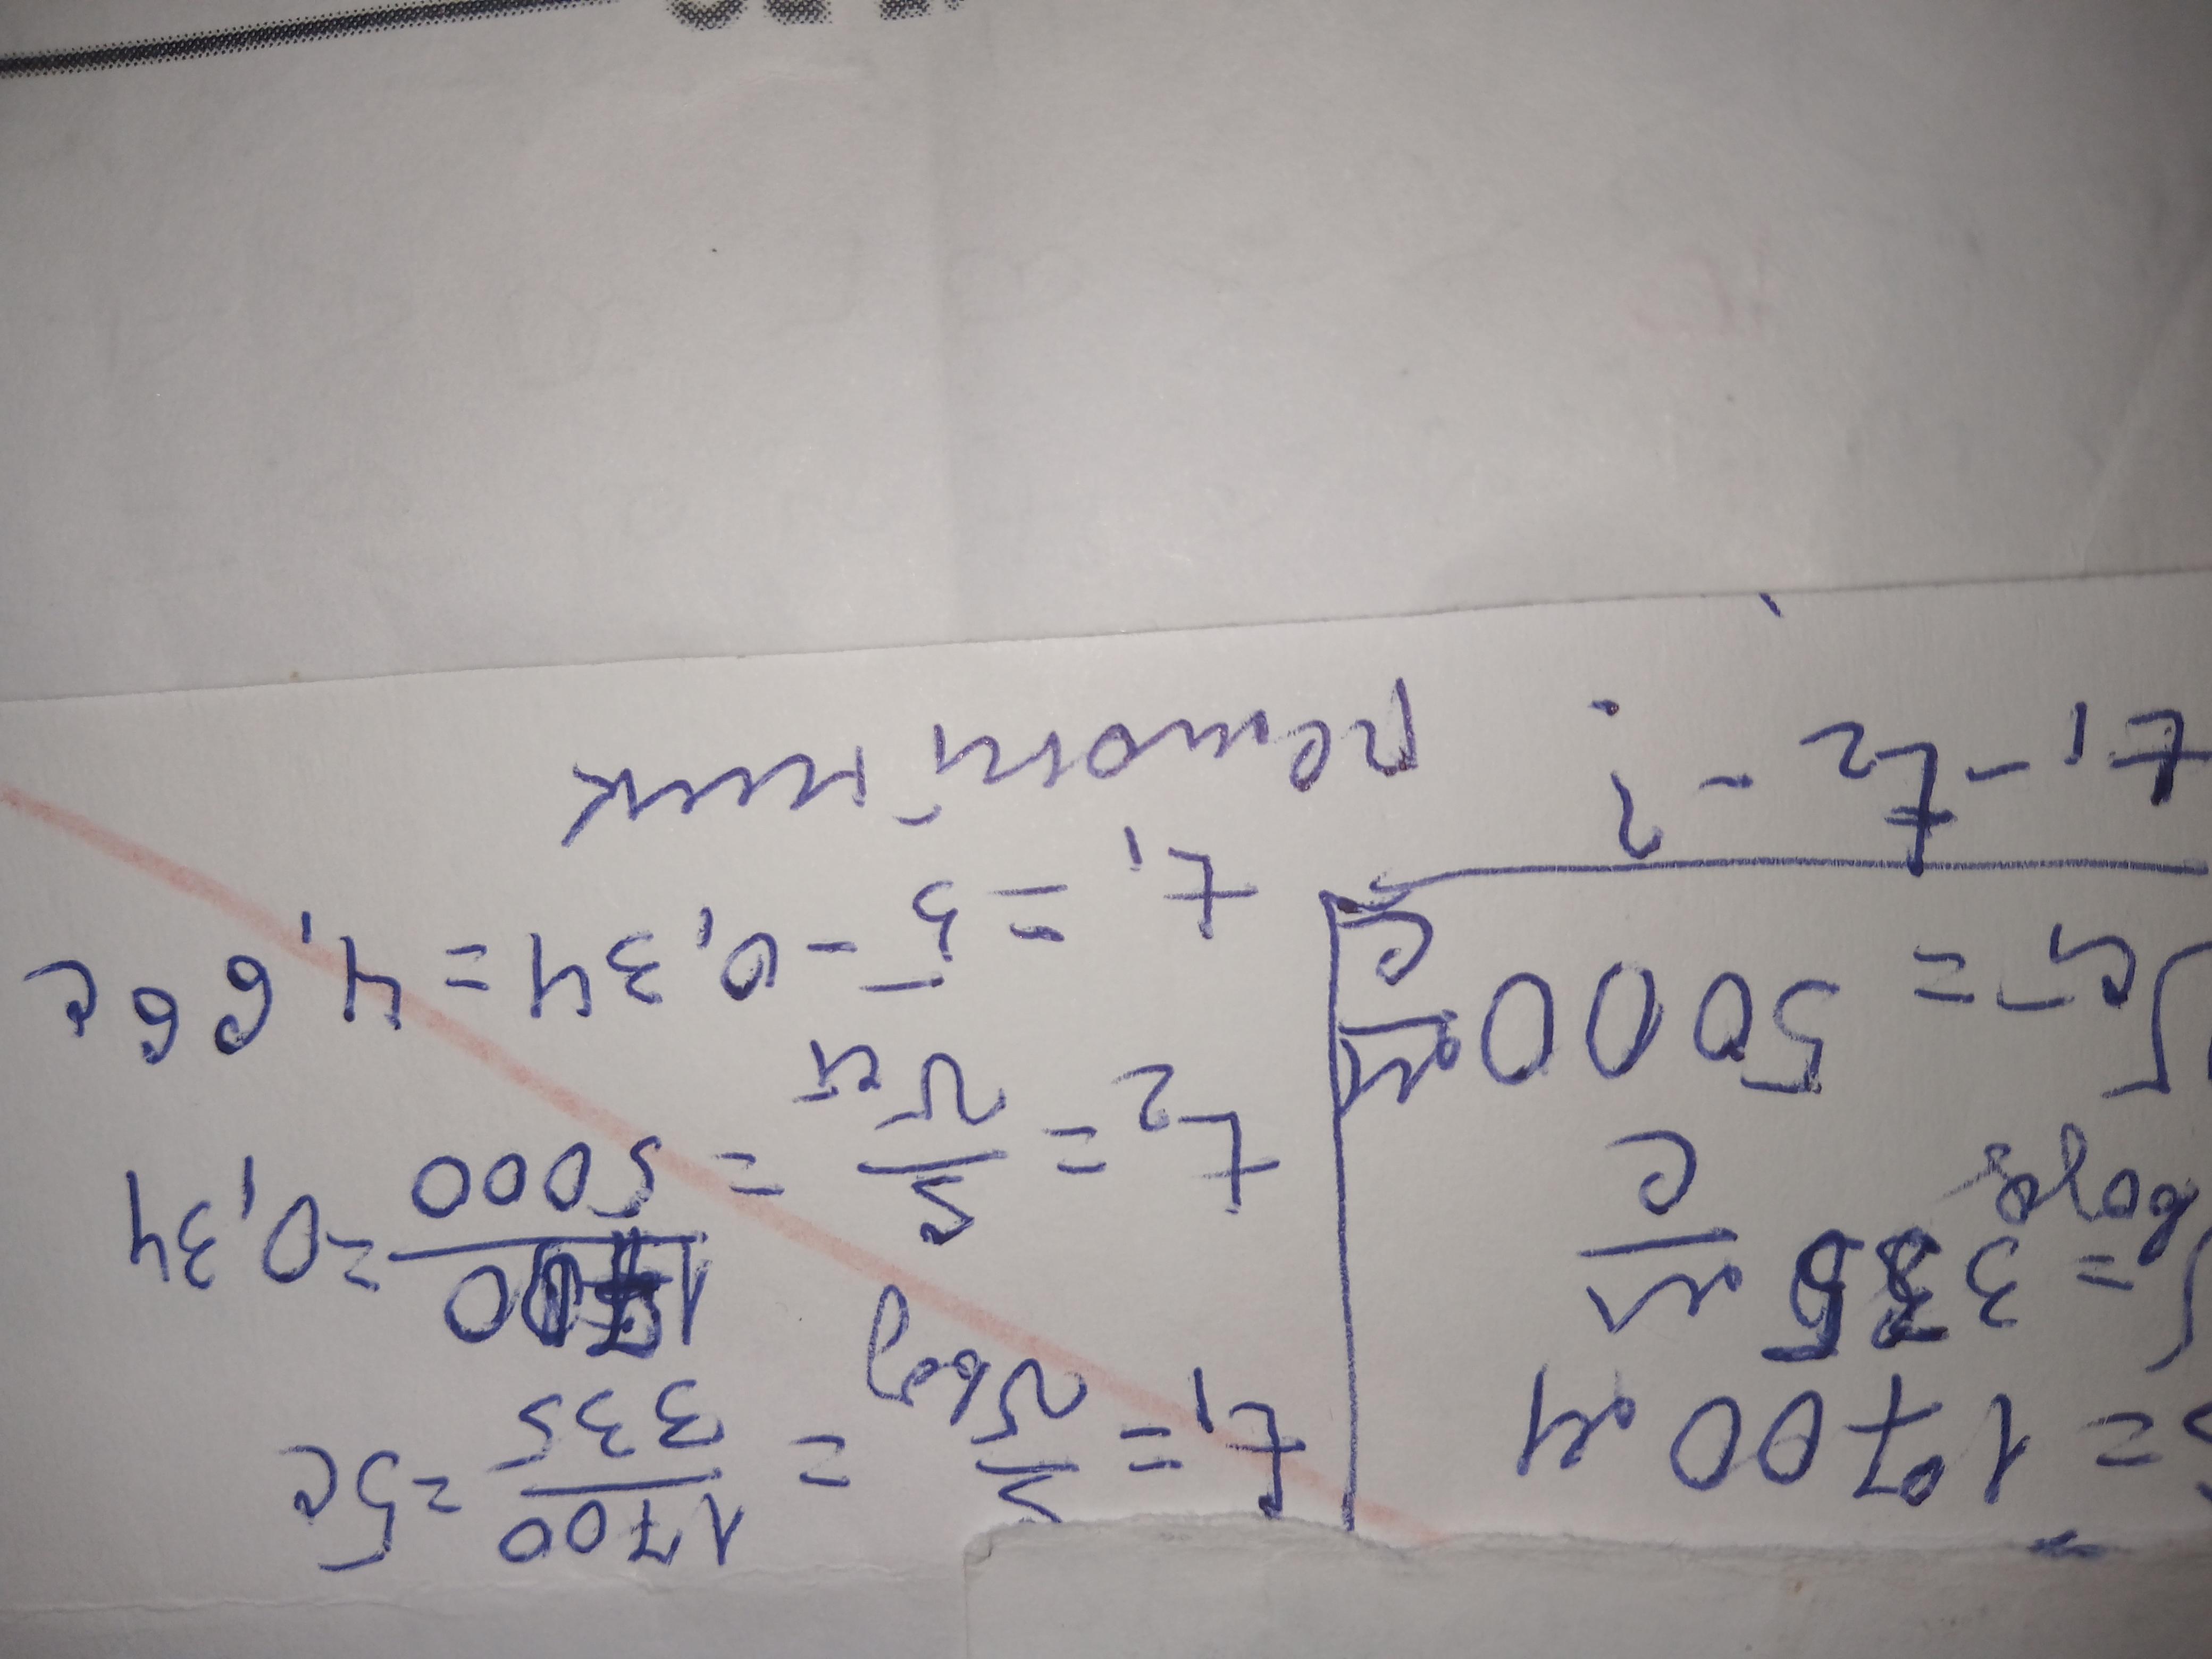 S = 1700 м
υ = 335 м/с
возд
υ ст = 5000 м/с
t₁ - t₂ - ?
t₁ = S/υ возд = 1700/335 = 5 с
t₂ = S/υ ст = 1700/5000 = 0,34
t₁ = 5 - 0,34 = 4,66 с